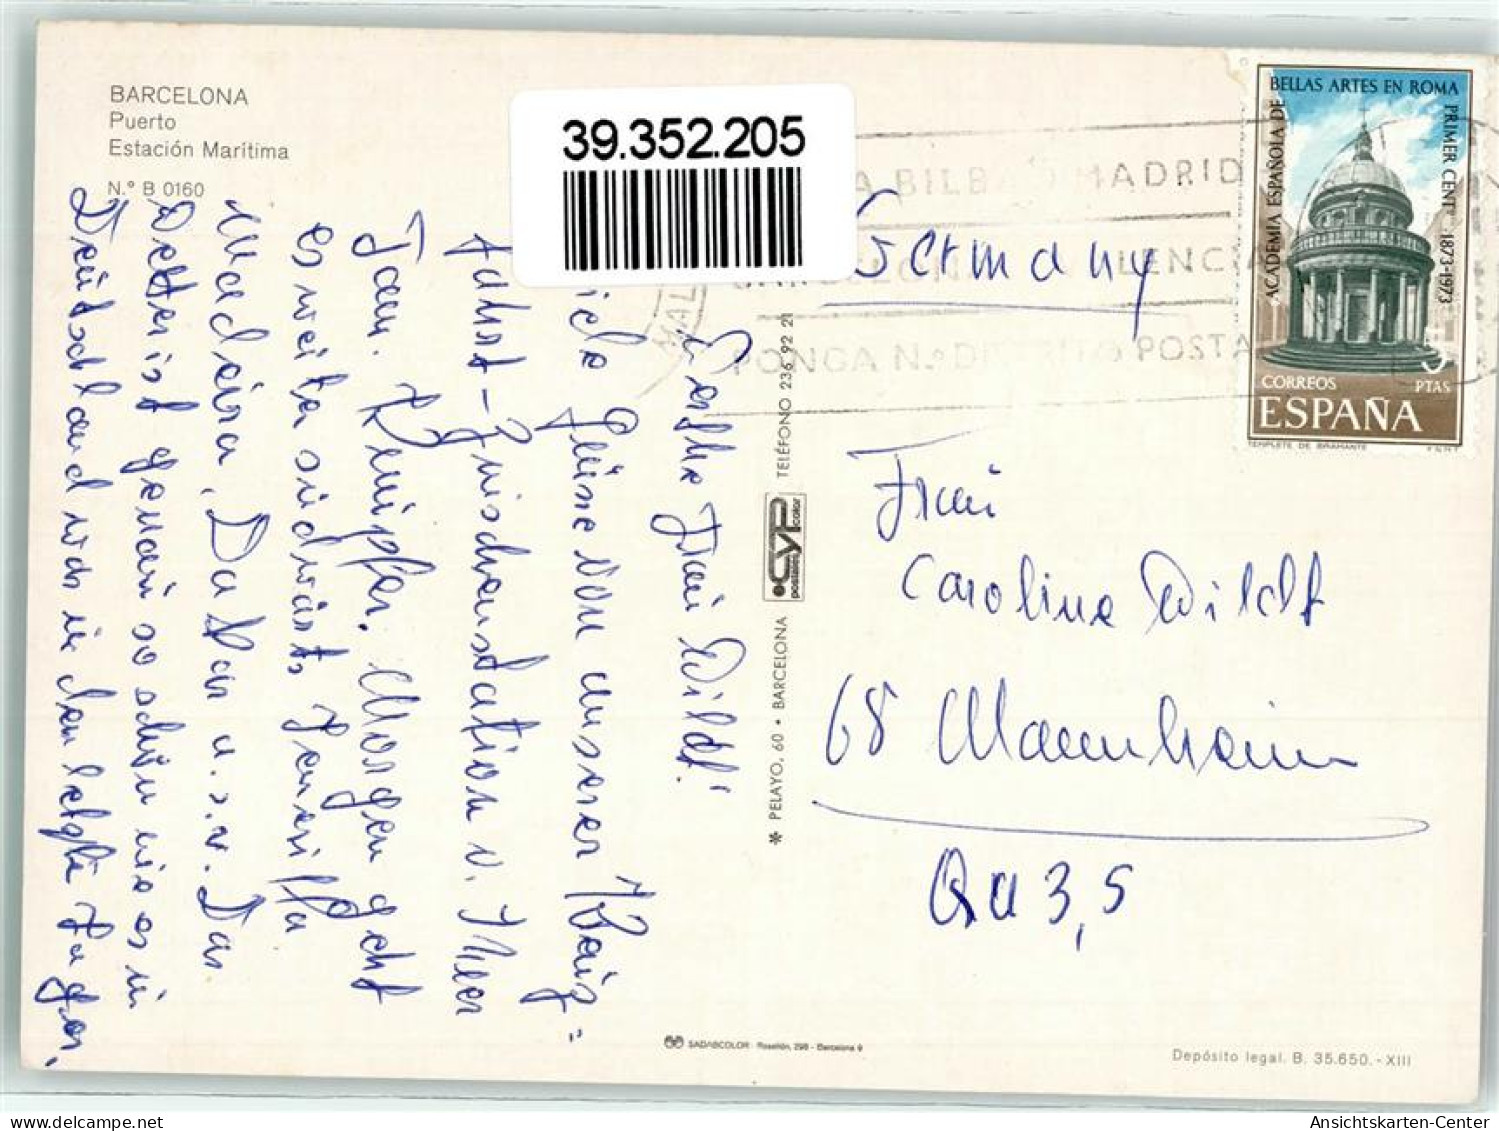 BARCELONA
Puerto
Estación Marítima
N.° B 0160
39.352.205
BILBAO MADRID
VALENCIA
PONGA N.° DISTRITO POSTAL
ACADEMIA ESPAÑOLA DE BELLAS ARTES EN ROMA PRIMER CENT° 1873-1973
5 PTAS
CORREOS
ESPAÑA
TEMPLETE DE BRAMANTE
F.N.M.T.
Germany
Liebe Frau Wildt!
Viele Grüsse von unserer Kreuz=
fahrt - Zwischenstation v. Ihrer
Fam. Kempfer. Morgen geht
es weiter südwärts, Teneriffa
Madeira, Dakar u.s.w. Das
Wetter ist genau so schön wie es in
Deutschland war in den letzten Tagen.
Frau
Caroline Wildt
68 Mannheim
Qu 3,5
✻ PELAYO, 60 • BARCELONA
CYP
postales color
TELÉFONO 236 92 21
SADAGCOLOR - Rosellón, 298 - Barcelona 9
Depósito legal. B. 35.650.-XIII
Ansichtskarten-Center